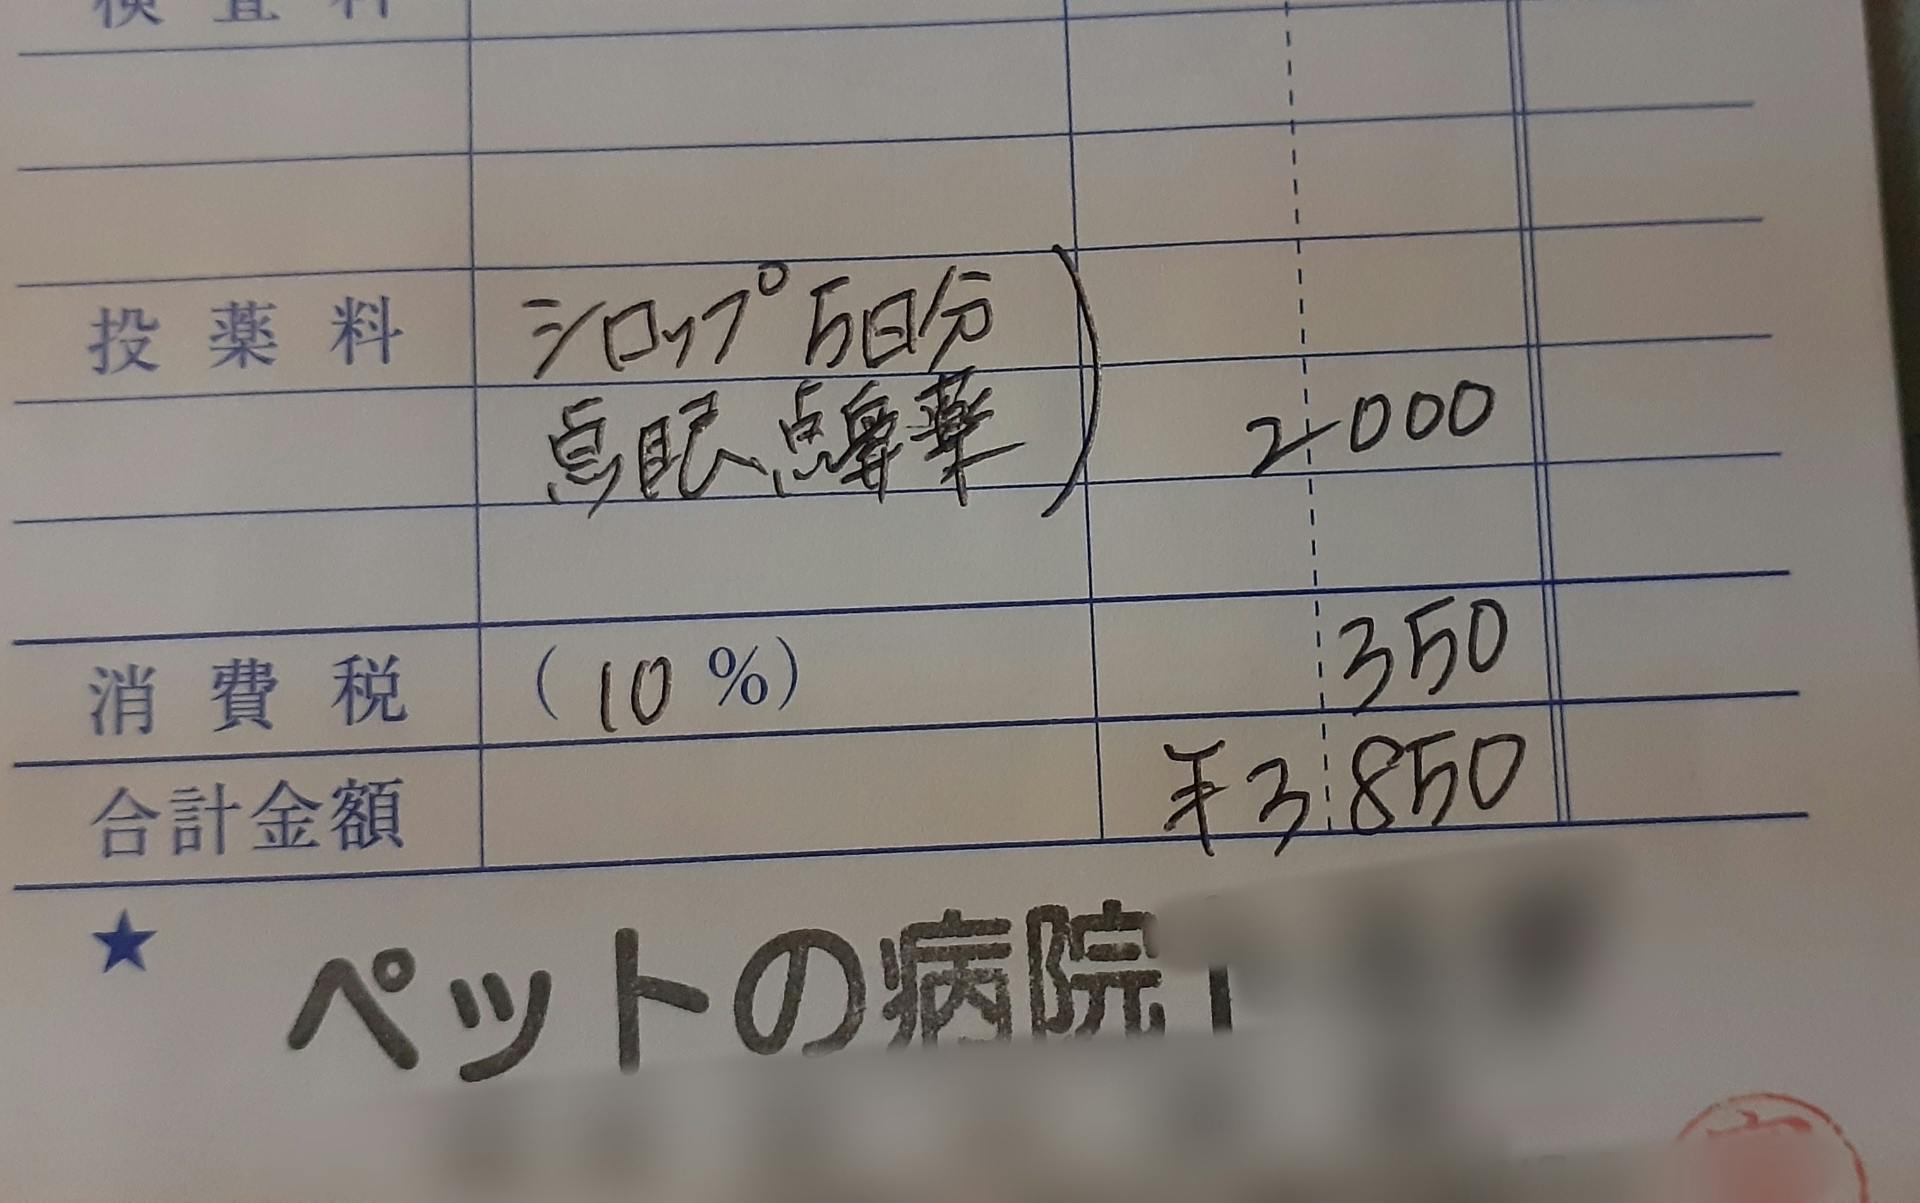 検査料
投薬料 シロップ 5日分
点眼、点鼻薬 2000
消費税 (10%) 350
合計金額 ¥3850
★ ペットの病院